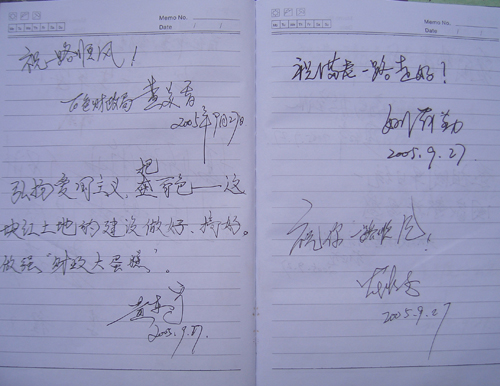 Memo No.
Mo Tu We Th Fr Sa Su
Date / /
祝一路顺风！
百色财政局 黄
2005年9月27日
弘扬爱国主义，把百色——这
块红土地的建设做好、搞好。
做强“财政大蛋糕”。
黄
2005.9.27.
Memo No.
Mo Tu We Th Fr Sa Su
Date / /
祝 一路走好！
2005.9.27
祝你一路顺风！
2005.9.27